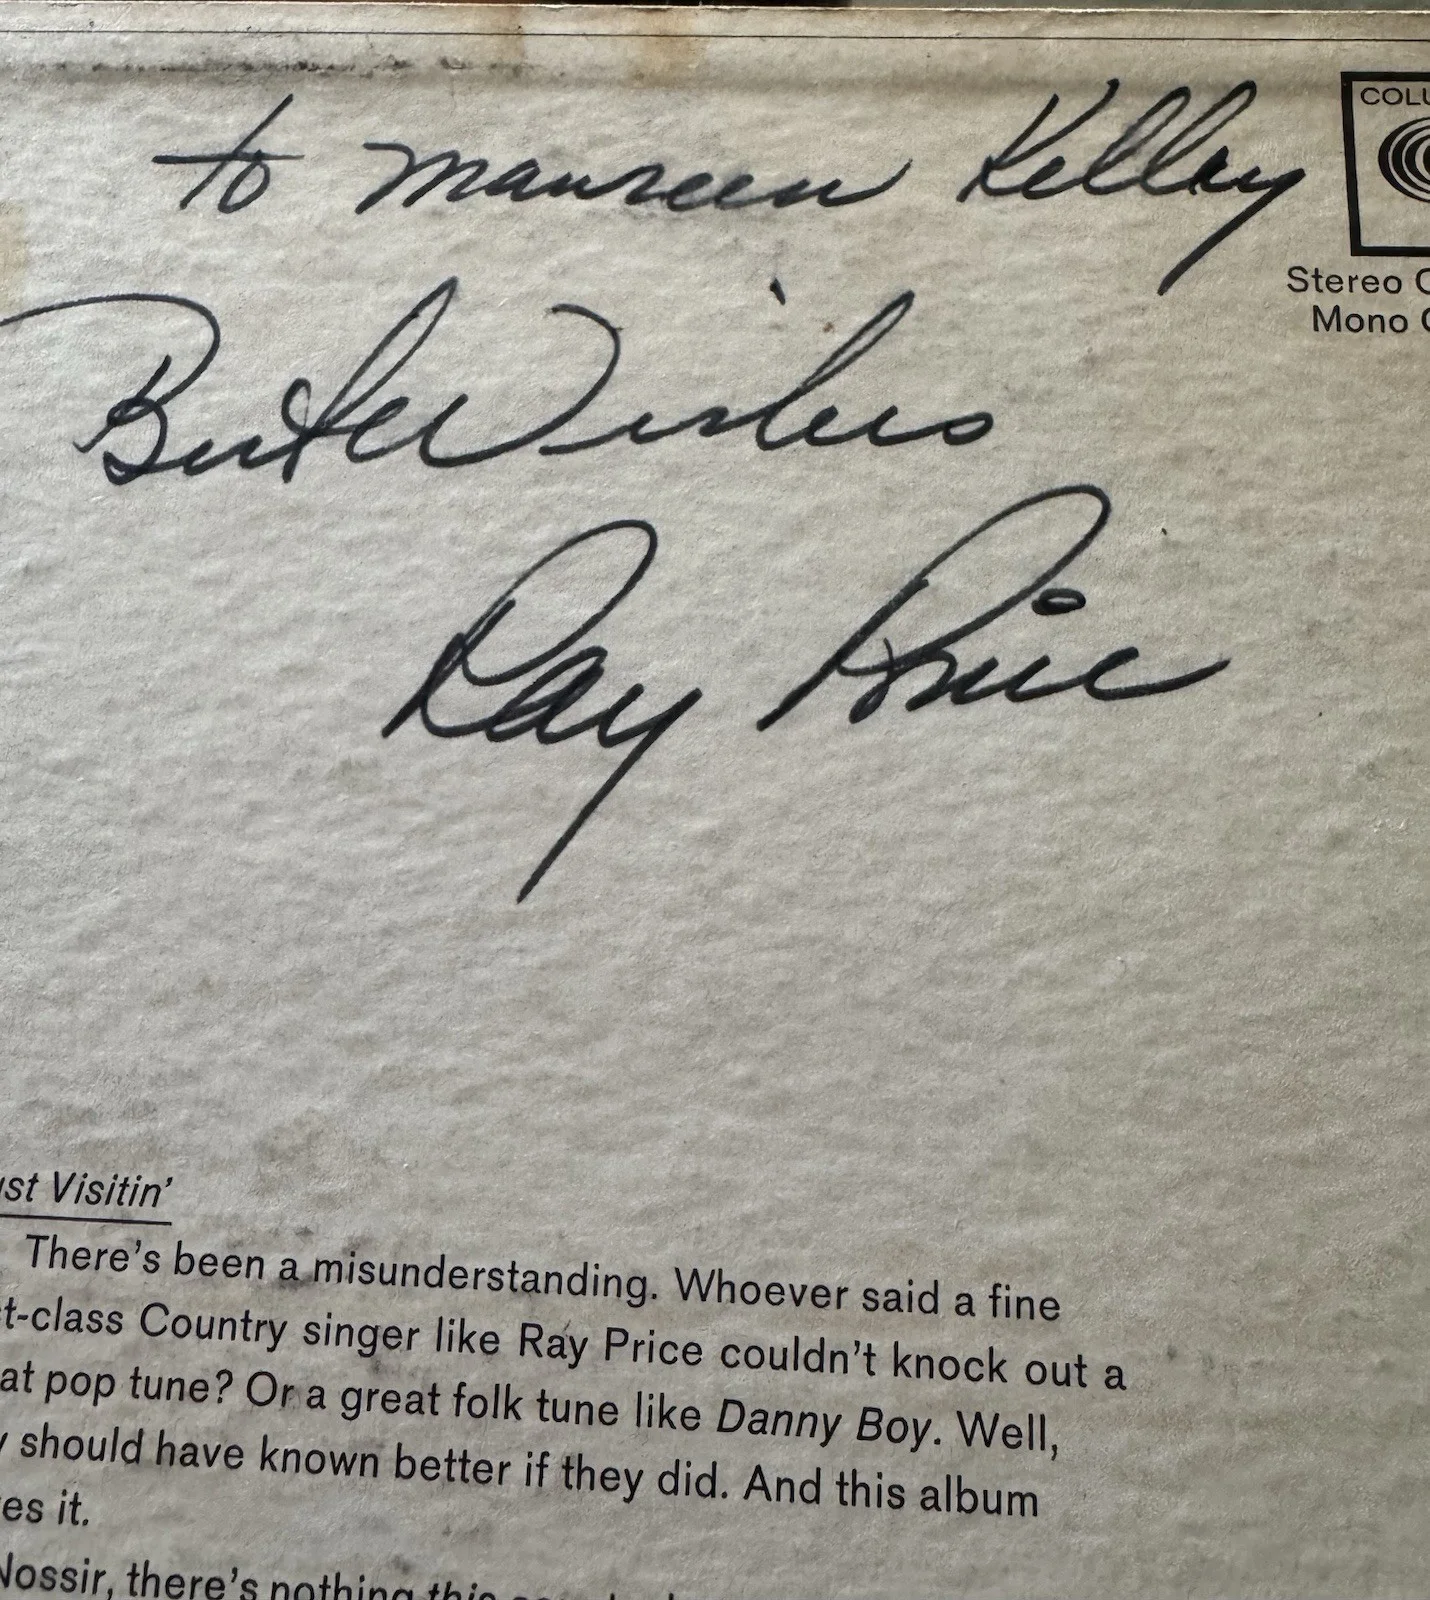 to Maureen Kelley
COLU
Stereo C
Mono C
Best Wishes
Ray Price
ust Visitin'
There's been a misunderstanding. Whoever said a fine
t-class Country singer like Ray Price couldn't knock out a
at pop tune? Or a great folk tune like Danny Boy. Well,
y should have known better if they did. And this album
es it.
Nossir, there's nothing this